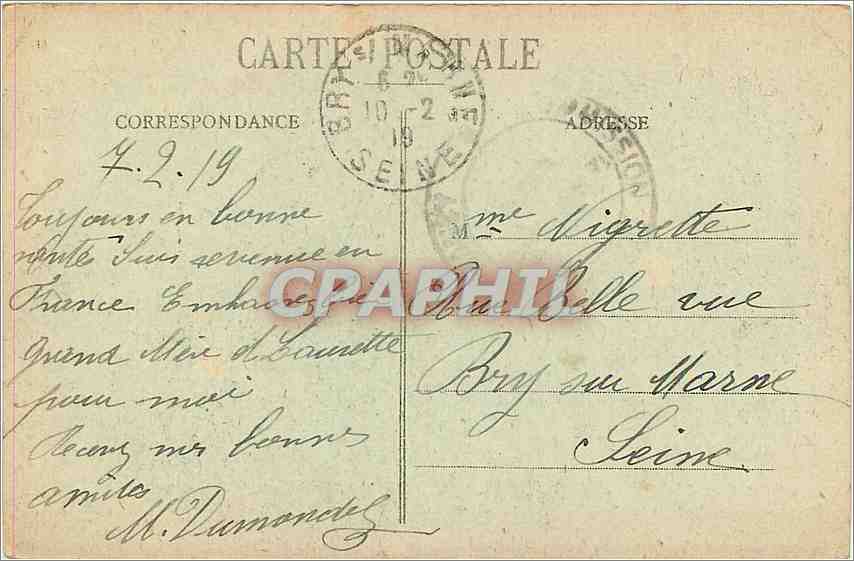 CARTE POSTALE
BRY-S/-MARNE
6
10 -2
19
SEINE
CORRESPONDANCE
ADRESSE
7.2.19
Toujours en bonne
santé Suis revenue en
France Embrassez bien
grand Mère et Laurette
pour moi
Recevez mes bonnes
amitiés
M. Dumondel
Mme Nigrette
Rue Belle vue
Bry sur Marne
Seine
CPAPHIL